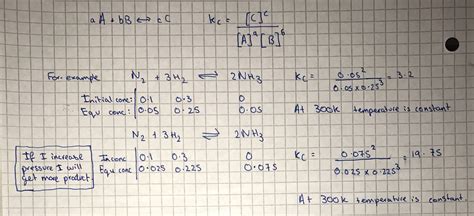 aA + bB ⟷ cC    Kc = [C]^c / [A]^a [B]^b
For example    N2 + 3H2 ⇌ 2NH3    Kc = 0.05² / 0.05 x 0.25³ = 3.2
Initial conc: 0.1    0.3    0
Equ conc: 0.05    0.25    0.05    At 300k temperature is constant
N2 + 3H2 ⇌ 2NH3
If I increase
pressure I will
get more product.
In conc    0.1    0.3    0    Kc = 0.075² / 0.025 x 0.225³ = 19.75
Equ conc    0.025    0.225    0.075
At 300k temperature is constant